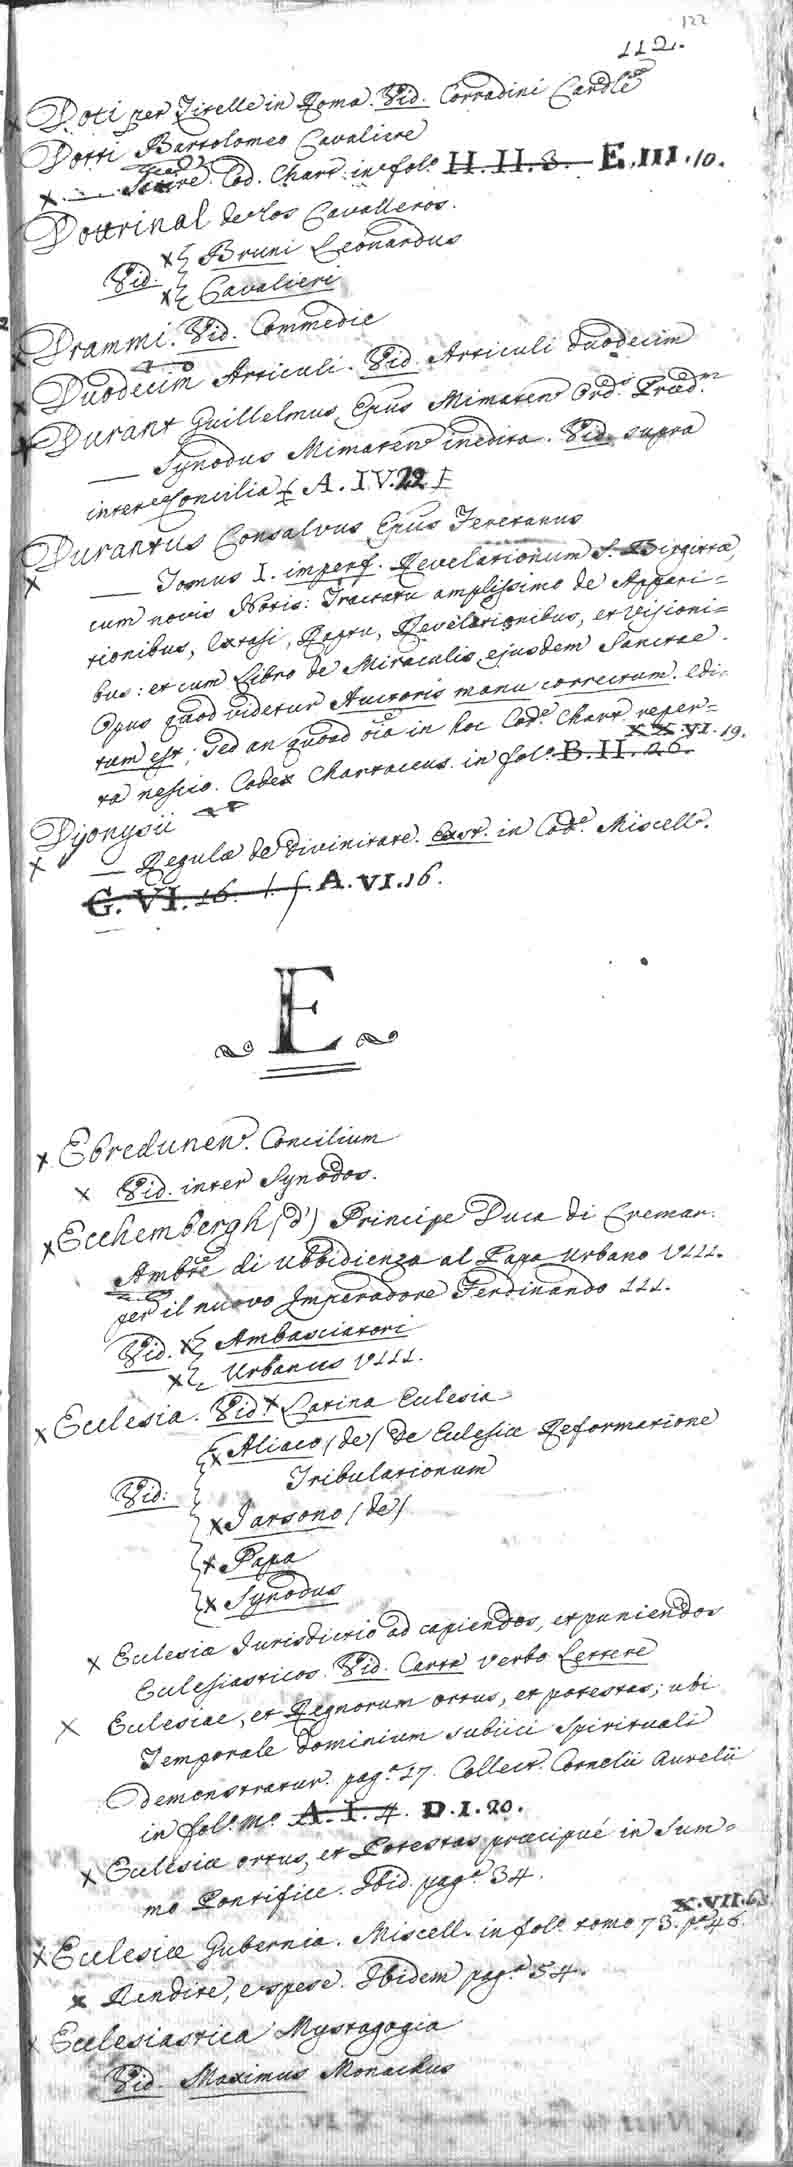 122
112.
Doti per Zitelle in Roma. Vid. Corradini Cardle
Dotti Bartolomeo Cavaliere
Satire. Cod. Chart. in fol.° H. II. 8. E. III. 10.
Dottrinal de los Cavalleros.
Vid. Bruni Leonardus
Cavalieri
Drammi. Vid. Commedie
Duodecim Articuli. Vid. Articuli duodecim
Durant Guillelmus Epus Mimaten Ord.s Præd.m
— Synodus Mimaten inedita. Vid. supra
inter Concilia A. IV. 22
Durantus Consalvus Epus Feretranus
— Tomus I. imperf. Revelationum S. Birgittæ,
cum novis Notis: Tractatu amplissimo de Appari=
tionibus, Extasi, Raptu, Revelationibus, et Visioni=
bus: et cum Libro de Miraculis ejusdem Sanctae.
Opus quod videtur Auctoris manu correctum. Edi=
tum est; Sed an quoad oia in hoc Cod.e Chart. reper=
ta nescio. Codex Chartaceus in fol.° B. II. 26. XX. VI. 19.
Dijonysii
— Regulæ de Divinitate. Exst. in Cod.e Miscell.
G. VI. 16. A. VI. 16.
E
Ebredunen. Concilium
Vid. inter Synodos.
Ecchembergh (d') Principe Duca di Cremau.
Ambre di Ubbidienza al Papa Urbano VIII.
per il nuovo Imperadore Ferdinando III.
Vid. Ambasciatori
Urbanus VIII.
Ecclesia. Vid. Latina Ecclesia
Aliaco (de) de Ecclesiæ Reformatione
Tribulationum
Vid:
Jarsono (de)
Papa
Synodus
Ecclesiæ Jurisdictio ad capiendos, et puniendos
Ecclesiasticos. Vid. Carte verbo Lettere
Ecclesiae, et Regnorum ortus, et potestas; ubi
Temporale dominium subiici Spirituali
demonstratur. pag.a 17. Collect. Cornelii Aurelii
in fol.° m.° A. I. 4. D. I. 20.
Ecclesiæ ortus, et Potestas præcipué in Sum=
mo Pontifice. Ibid. pag.a 34.
Ecclesiæ Gubernia. Miscell. in fol.° tomo 73. p.a 46. X. VII. 63
Rendite, e spese. Ibidem pag.a 54.
Ecclesiastica Mystagogia
Vid. Maximus Monachus